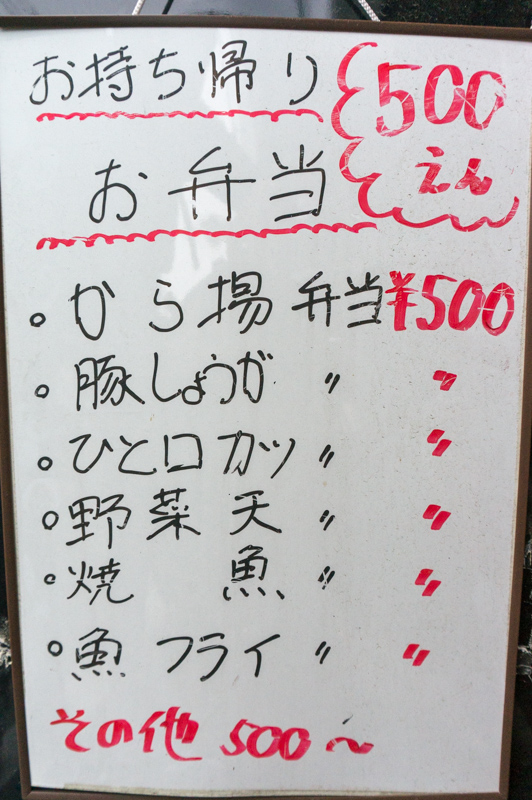 お持ち帰り 500
お弁当 えん
。から場弁当 ¥500
。豚しょうが 〃 〃
。ひと口カツ 〃 〃
。野菜天 〃 〃
。焼魚 〃 〃
。魚フライ 〃 〃
その他 500〜